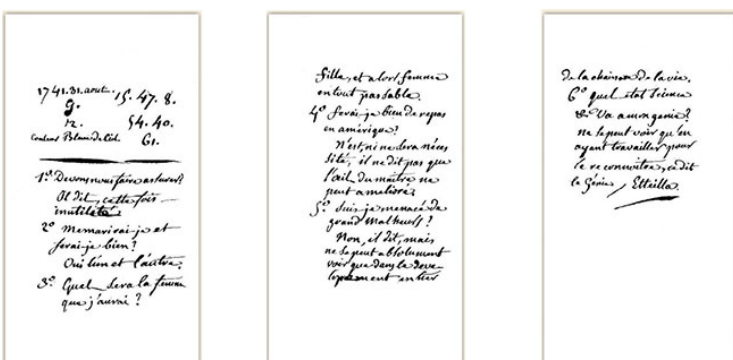 1741.31. aout. 15. 47. 8.
9. 54. 40.
12. 61.
Couleur Blanc de Ciel.
1° Devons nous faire
Il dit, cette fois
inutilité
2° Me marirai-je et
ferai-je bien?
Oui l'un et l'autre.
3° Quel sera la femme
que j'aurai ?
fille, et alors femme
en tout passable.
4° ferai-je bien de repas
en amérique?
N'est, ni ne sera néces
sité, il ne dit pas que
l'œil du maître ne
peut améliorer
5° Suis-je menacé de
grand Malheurs ?
Non, il dit, mais
ne se peut absolument
voir que dans la deve
lopement entier
de la chainon de la vie.
6° quel état Science
Va a mon genie?
ne se peut voir qu'en
ayant travaillé pour
le reconnoitre, ce dit
le Génie, Etteilla.